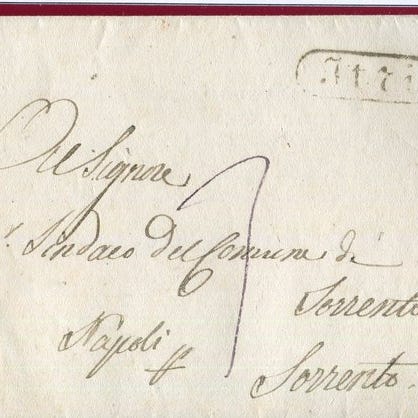 Itri
Al Signore
Sindaco del Comune di
Sorrento
Napoli
Sorrento